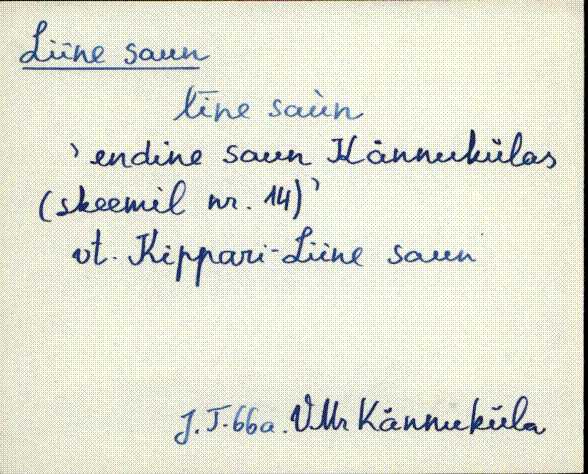 Liine saun
līne saùn
' endine saun Kännukülas
(skeemil nr. 14)'
vt. Kippari-Liine saun
J.T.66a. VMr Kännuküla